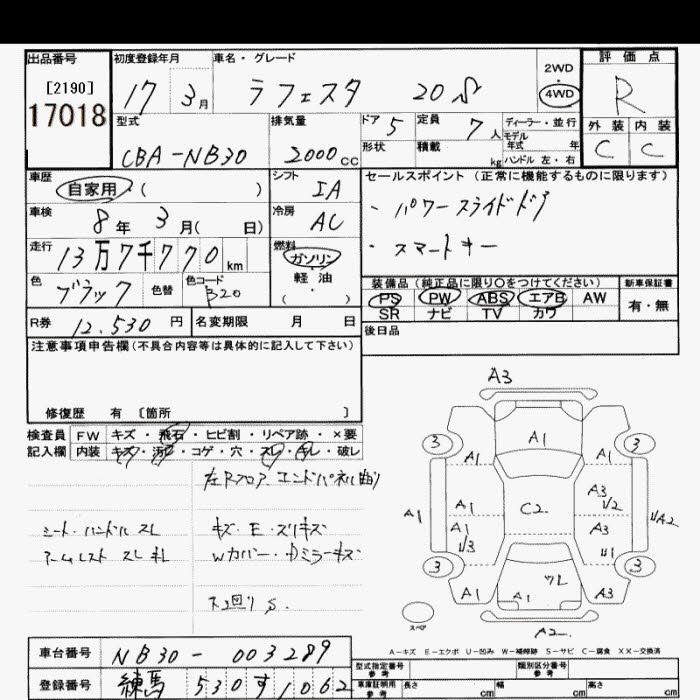 出品番号 初度登録年月 車名・グレード 2WD 評価点
[2190] 17 3月 ラフェスタ 20S 4WD R
17018 型式 排気量 ドア 5 定員 7人 ディーラー・並行 外装 内装
モデル年式 年
CBA-NB30 2000cc 形状 積載 kg ハンドル 左・右 C C
車歴 シフト セールスポイント(正常に機能するものに限ります)
自家用 ( ) IA ・パワースライドドア
車検 8年 3月( 日) 冷房 AC ・スマートキー
走行 13万7千770km 燃料 ガソリン
軽油
( )
色 ブラック 色替 色コード B20
装備品(純正品に限り○をつけてください) 新車保証書
PS PW ABS エアB AW 有・無
SR ナビ TV カワ
R券 12,530円 名変期限 月 日 後日品
注意事項申告欄(不具合内容等は具体的に記入して下さい)
修復歴 有 〔箇所 〕
検査員 FW キズ・飛石・ヒビ割・リペア跡・×要
記入欄 内装 キズ・汚れ・コゲ・穴・スレ・キレ・破レ
左Rフロア エンドパネル曲り
シート・ハンドル スレ キズ・E・スリキズ
アームレスト スレ キレ Wカバー・ミラーキズ
下回り S.
A3
3 A1 3
A1 A1
A1 A1 C2 A3 U2
A1 A3 U2 A2
U3 U1
3 3
A1 A1 ワレ A3
スペア A2
A-キズ E-エクボ U-凹み W-補修跡 S-サビ C-腐食 XX-交換済
車台番号 NB30-003289 型式指定番号 参考 類別区分番号 参考
登録番号 練馬 530す1062 車庫証明用 参考 長さ cm 幅 cm 高さ cm